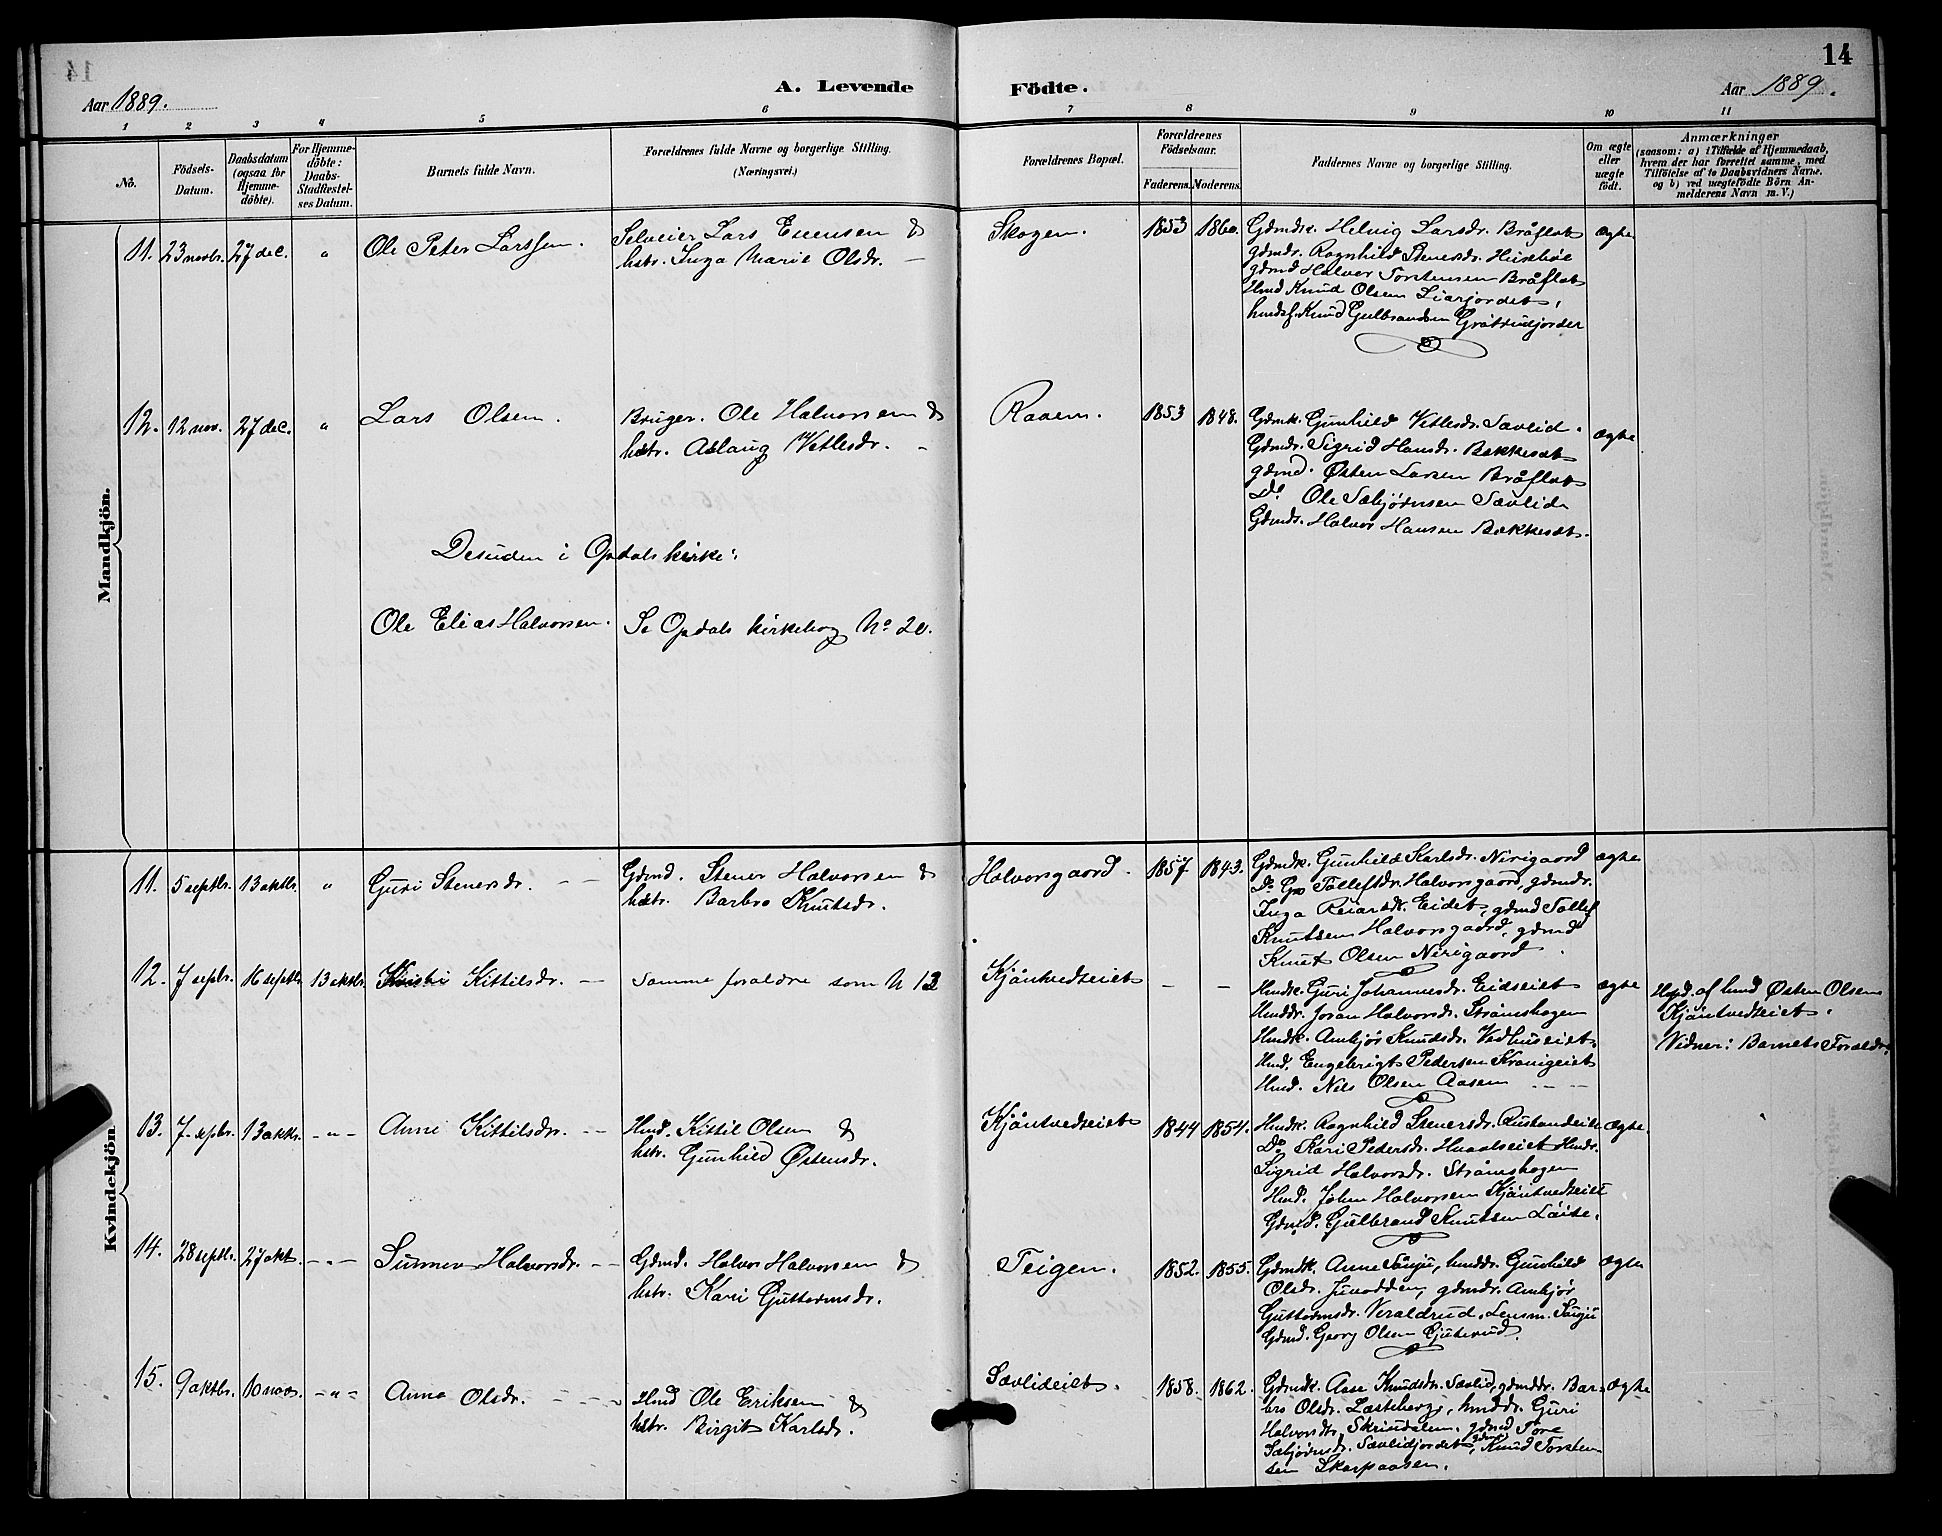 14
Aar 1889.
A. Levende Födte.
Aar 1889.
1 2 3 4 5 6 7 8 9 10 11
No.
Födsels-
Datum.
Daabsdatum
(ogsaa for
Hjemme-
döbte).
For Hjemme-
döbte:
Daabs-
Stadfæstel-
ses Datum.
Barnets fulde Navn.
Forældrenes fulde Navne og borgerlige Stilling.
(Næringsvei.)
Forældrenes Bopæl.
Forældrenes
Födselsaar.
Faderens. Moderens.
Faddernes Navne og borgerlige Stilling.
Om ægte
eller
uægte
födt.
Anmærkninger
(saasom: a) i Tilfælde af Hjemmedaab,
hvem der har forrettet samme, med
Tilföielse af to Daabsvidners Navne,
og b) ved uægtefödte Börn An-
melderens Navn m. V.)
Mandkjön.
11. 23 novbr. 27 dec. " Ole Peter Larssen.
Selveier Lars Evensen &
hstr. Inga Marie Olsdr. —
Skogen. 1853 1860.
Gdmdk. Helvig Larsdr. Bråflat
gdmdr. Ragnhild Stenersdr. Huseböe
gdmd Halvor Torstensen Bråflat
Hmd Knud Olsen Liarjordet,
hmdsf. Knud Gulbrandsen
ægte
12. 12 nov. 27 dec. " Lars Olsen.
Bruger. Ole Halvorsen &
hstr. Aslaug Vetlesdr. –
Raaen. 1853 1848.
Gdmk. Gunhild Vetlesdr. Savlid.
Gdmdr. Sigrid Hansdr. Bekkesæt
gdmd. Østen Larsen Bråflat
Do Ole Sæbjørnsen Savlid
Gdmds. Halvor Hansen Bekkesæt.
ægte
Desuden i Opdals kirke:
Ole Elias Halvorsen. Se Opdals kirkebog No 20.
Kvindekjön
11. 5 septbr. 13 oktbr. " Guri Stenersdr. — —
Gdmd. Stener Halvorsen &
hstr. Barbro Knutsdr.
Halvorsgaard. 1857 1843.
Gdmdk. Gunhild Karlsdr. Nirigaard
Do Gro Tollefsdr. Halvorsgaard, gdmdr.
Inga Reiarsdr. Eidet, gdmd Tollef
Knutsen Halvorsgaard, gdmd
Knut Olsen Nirigaard
ægte
12. 7 sepbr. 16 septbr. 13 oktbr. Kristi Kittilsdr. —
Samme foraldre som N 13
Kjöntvedteiet – –
Hmdk. Guri Johannesdr. Eidseiet
Hmddr. Joran Halvorsdr. Strömshagen
Hmdk. Ambjör Knudsdr. Vedhuseiet.
Hmd. Engebrigt Pedersen Kravigeiet
Hmd. Nils Olsen Aasen
ægte
Hjpd. af hmd Østen Olsen
Kjöntvedteiet.
Vidner: Barnets Foraldr.
13. 7 sepbr. 13 oktbr. – " – Anne Kittilsdr. —
Hmd. Kittil Olsen &
hstr. Gunhild Østensdr.
Kjöntvedteiet 1844 1854.
Hmdk. Ragnhild Stenersdr. Rustandeiet
Do Kari Pedersdr. Hvaalseiet Hmdr.
Sigrid Halvorsdr. Strömshagen
Hmd. John Halvorsen Kjöntvedteiet
Gdmd. Gulbrand Knutsen
ægte.
14. 28 septbr. 27 okt. – " – Sunnev Halvorsdr. — —
Gdmd. Halvor Halvorsen &
hstr. Kari Guttormsdr.
Teigen. 1852. 1855.
Gdmdk. Anne Sönju, hmddr. Gunhild
Olsdr. Juvodden, gdmdr. Ambjör
Guttormsdr. Veraldrud, Lensm. Sönju
Gdmd. Georg Olsen Gjuterud.
ægte
15. 9 oktbr. 10 nov. – " – Anne Olsdr. — —
Hmd Ole Eriksen &
hstr. Birgit Karlsdr.
Savlideiet. 1858. 1862.
Gdmdk. Aase Knudsdr. Savlid, gdmddr. Bar-
bro Olsdr. Læsteberg, hmddr. Guri
Halvorsdr. Skrindalen, gdmd Tore
Sæbjörnsdr. Savlidjordet, gdmds Knud Torsten
sen Skarpaasen.
ægte